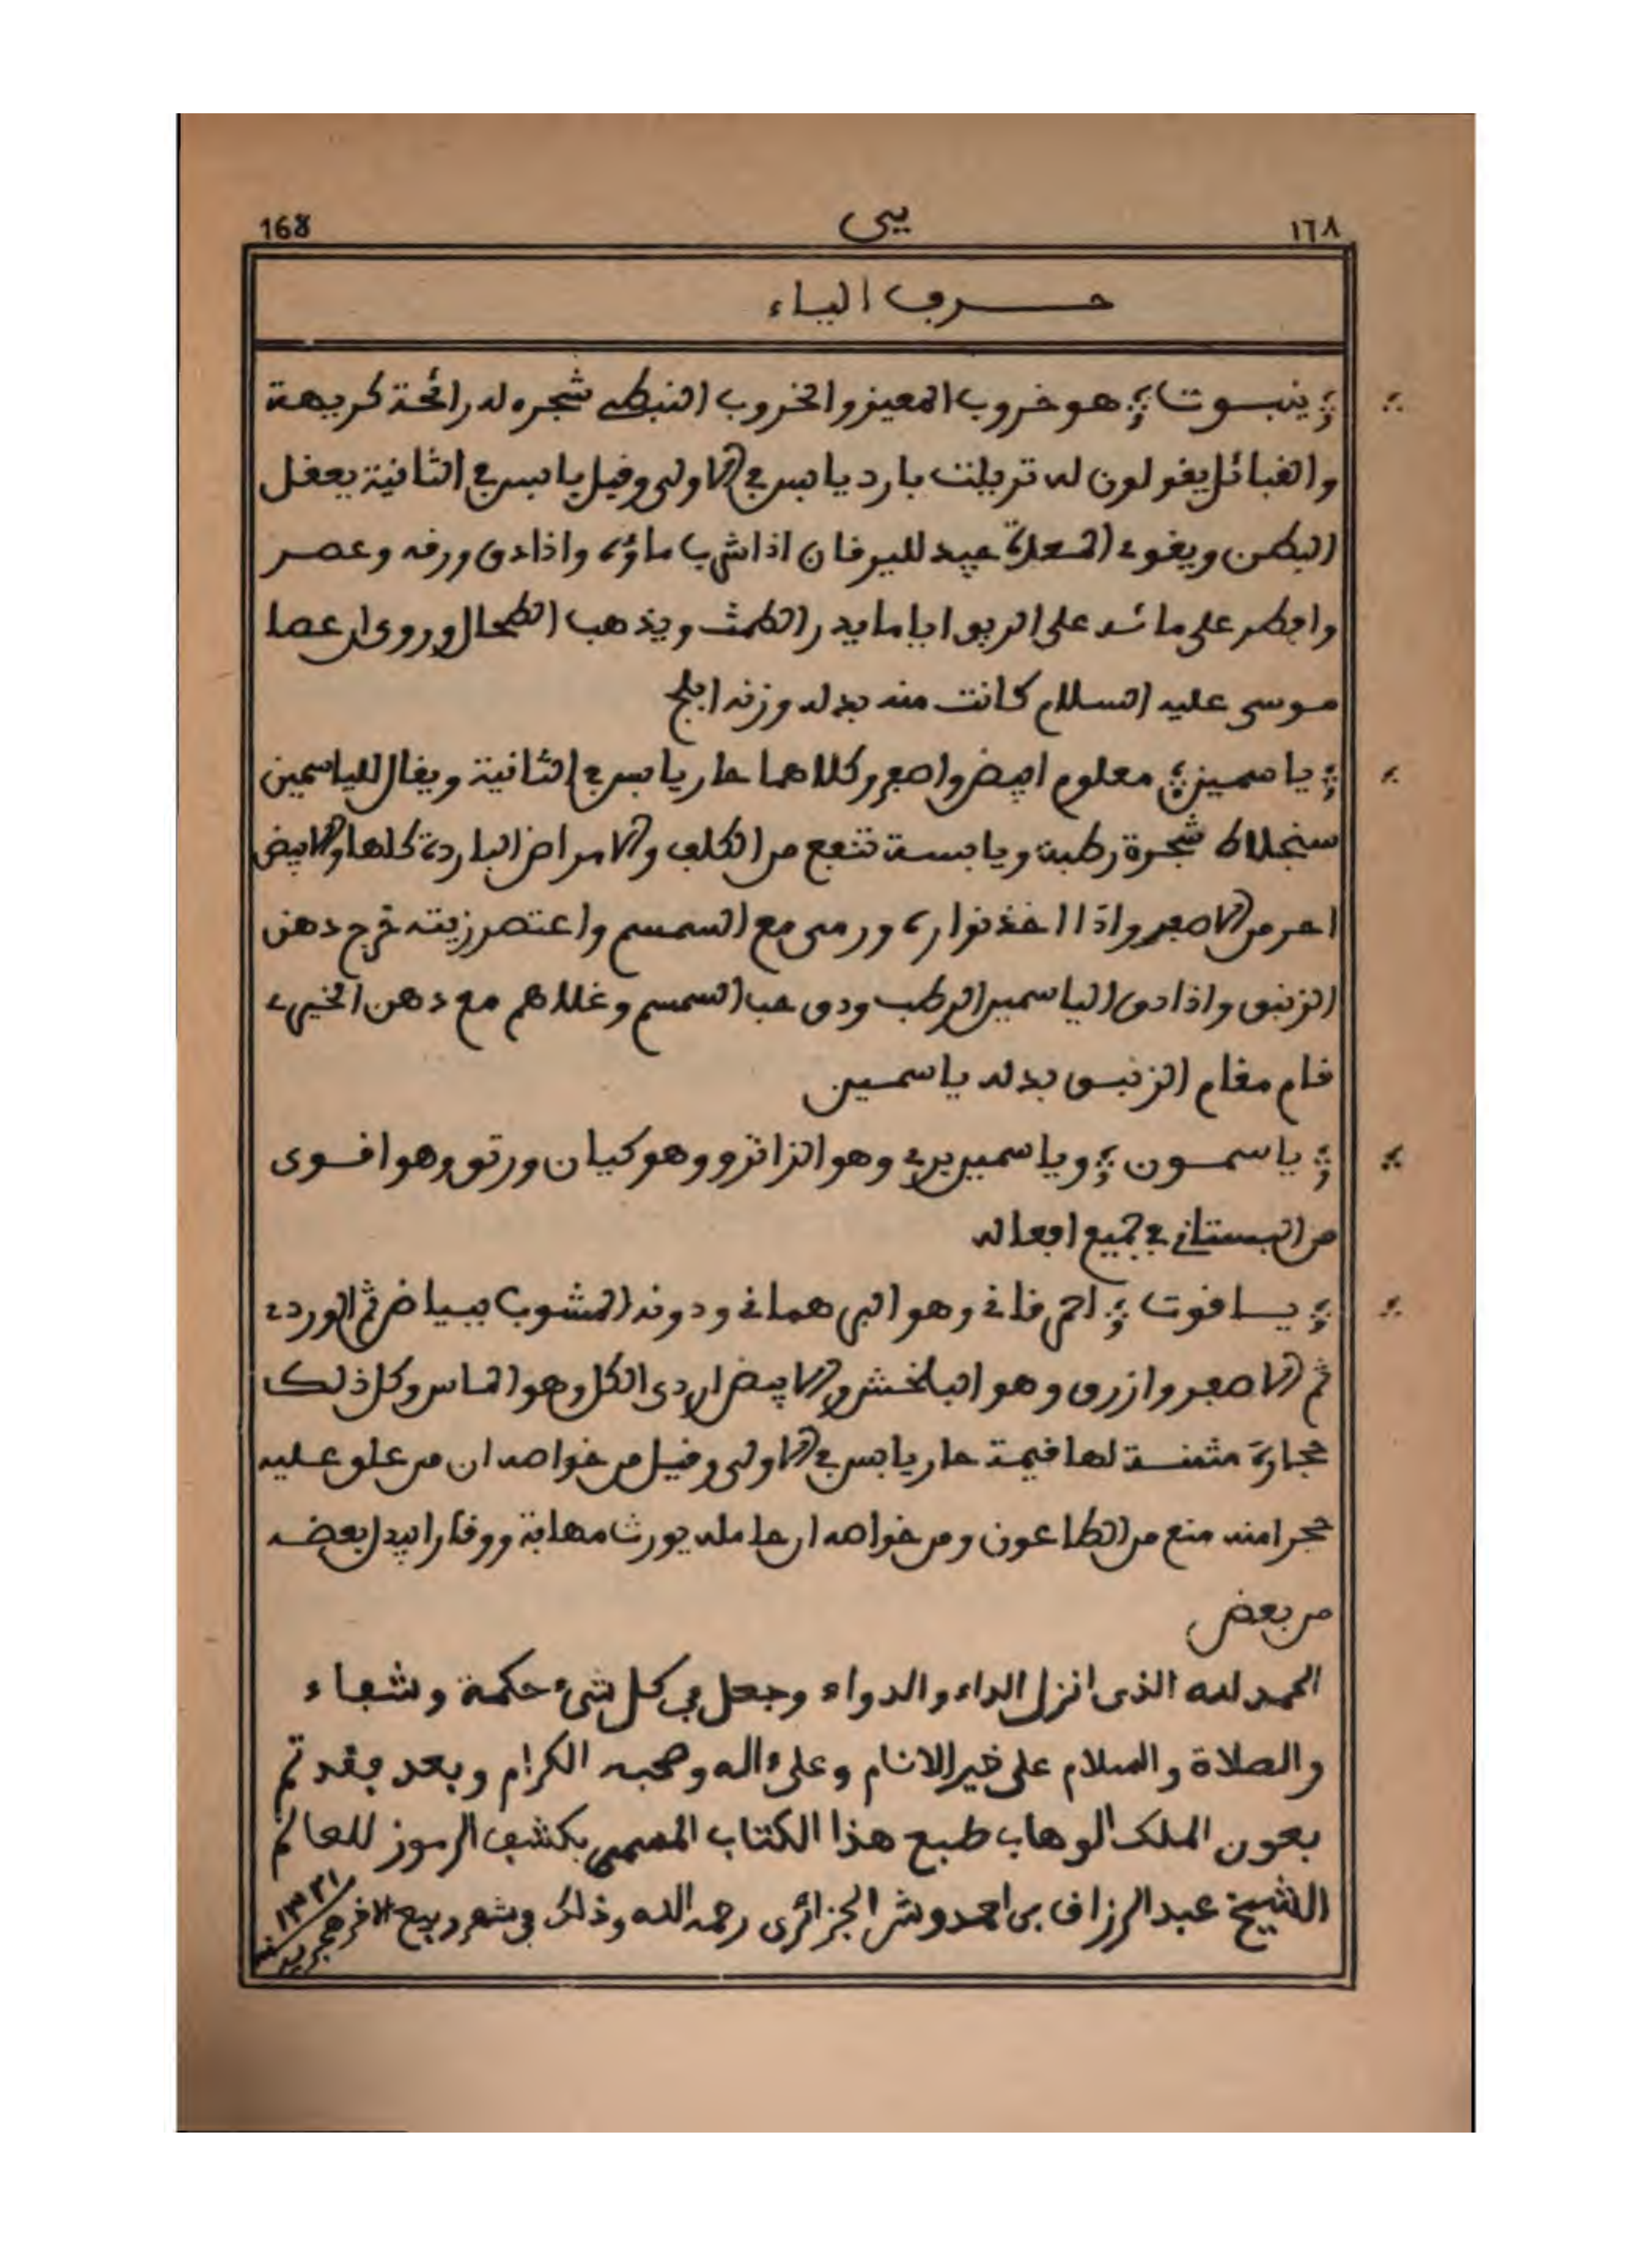 ١٦٨ يى 168
حرف الياء
ينبوت هو خروب المعيز والخروب النبطي شجره له رائحة كريهة
والقبائل يقولون له تربلت بارد يابس في الاولى وقيل يابس في الثانية يعقل
البطن ويقوي المعدة جيد لليرقان اذا شرب ماؤه واذا دق ورقه وعصر
وافطر على مائه على الريق اياما يدر الطمث ويذهب الطحال وروى ان عصا
موسى عليه السلام كانت منه بدله وزنه ابلج
ياسمين معلوم ابيض واصفر وكلاهما حار يابس في الثانية ويقال للياسمين
سنجلاط شجرة رطبة ويابسة تنفع من الكلف والامراض الباردة كلها والابيض
احر من الاصفر واذا اخذ نواره ورمى مع السمسم واعتصر زيته خرج دهن
الزنبق واذا دق الياسمين الرطب ودق حب السمسم وغلاهم مع دهن الخيري
قام مقام الزنبق بدله ياسمين
ياسمون وياسمين بري وهو الزانزو وهو كيان ورتق وهو اقوى
من البستاني في جميع افعاله
ياقوت احمر قاني وهو البهرماني ودونه المشوب ببياض ثم الوردي
ثم الاصفر وازرق وهو البلخش والابيض اردى الكل وهو الماس وكل ذلك
حجارة مثمنة لها قيمة حار يابس في الاولى وقيل من خواصه ان من علق عليه
حجرا منه منع من الطاعون ومن خواصه ان حامله يورث مهابة ووقارا يبدل بعضه
من بعض
الحمد لله الذى انزل الداء والدواء وجعل في كل شيء حكمة وشفاء
والصلاة والسلام على خير الانام وعلى ءاله وصحبه الكرام وبعد فقد تم
بعون الملك الوهاب طبع هذا الكتاب المسمى بكشف الرموز للعالم
الشيخ عبد الرزاق بن احمدوش الجزائرى رحمه الله وذلك في شهر ربيع الاخر هجرية سنة ١٣٢١